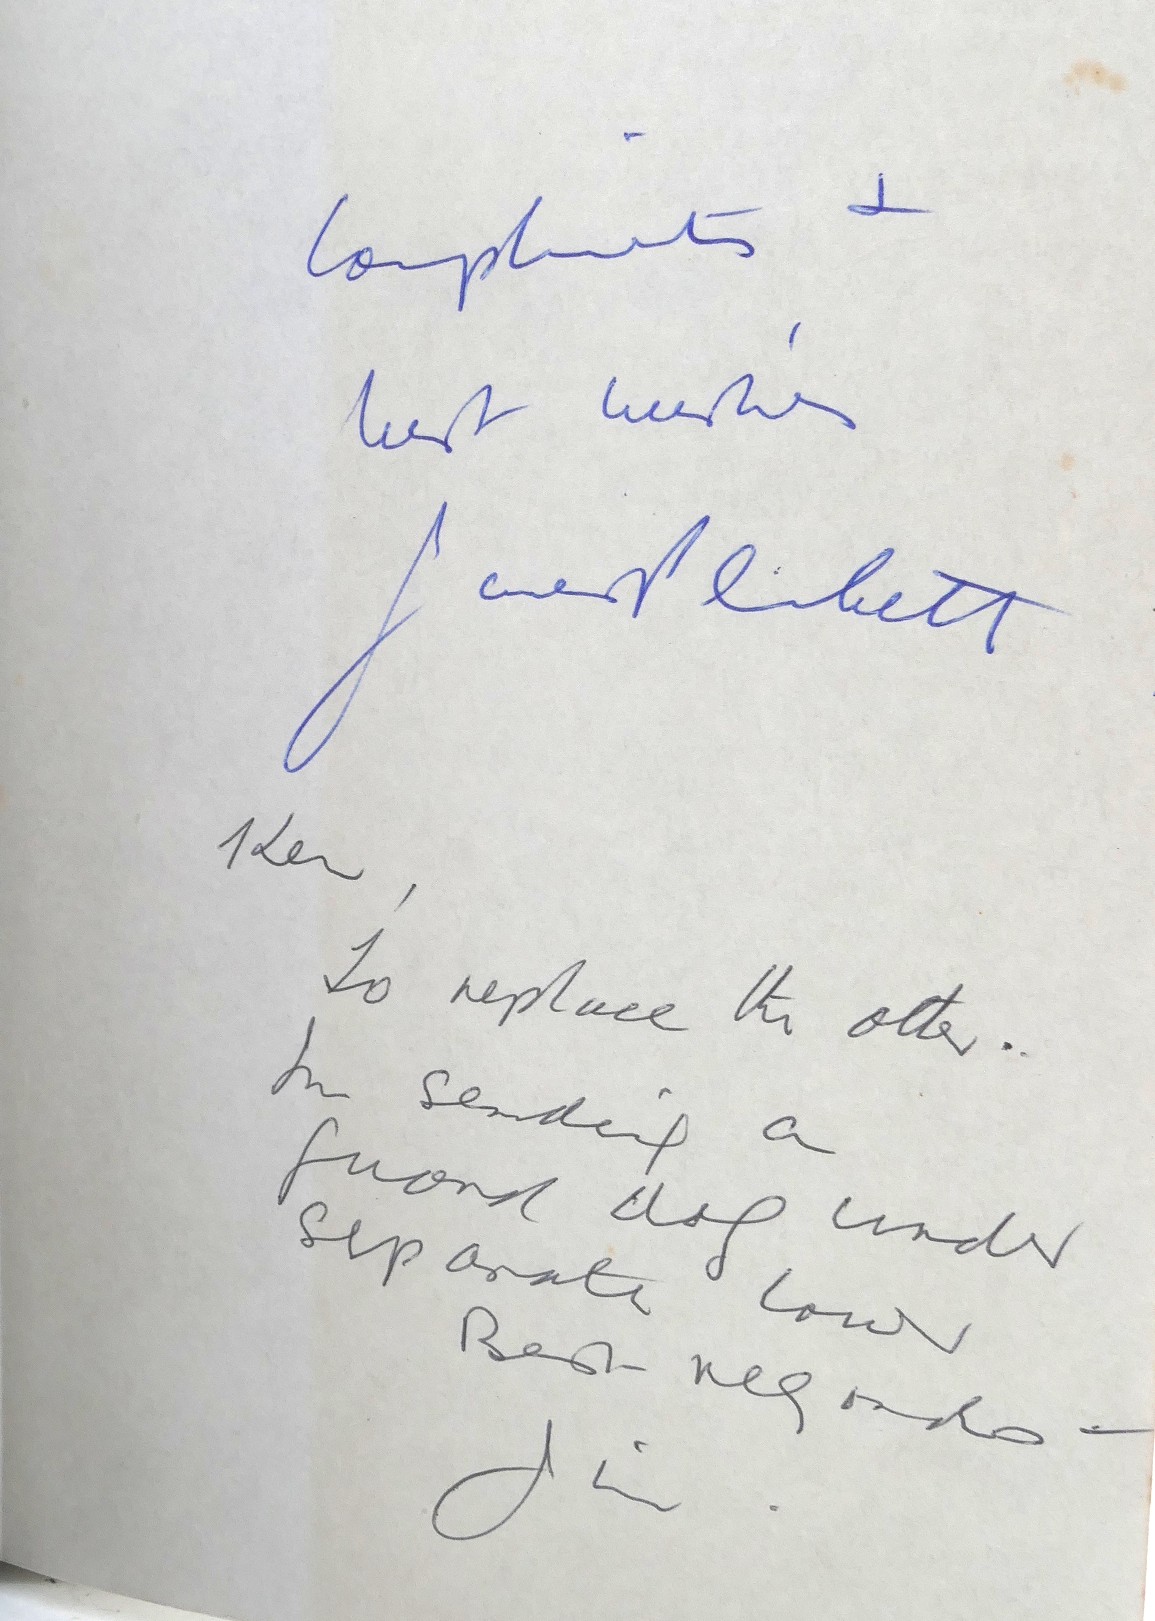 Compliments +
best wishes
James Plunkett
Ken,
To replace the other..
I'm sending a
guard dog under
separate cover
Best regards –
Jim.